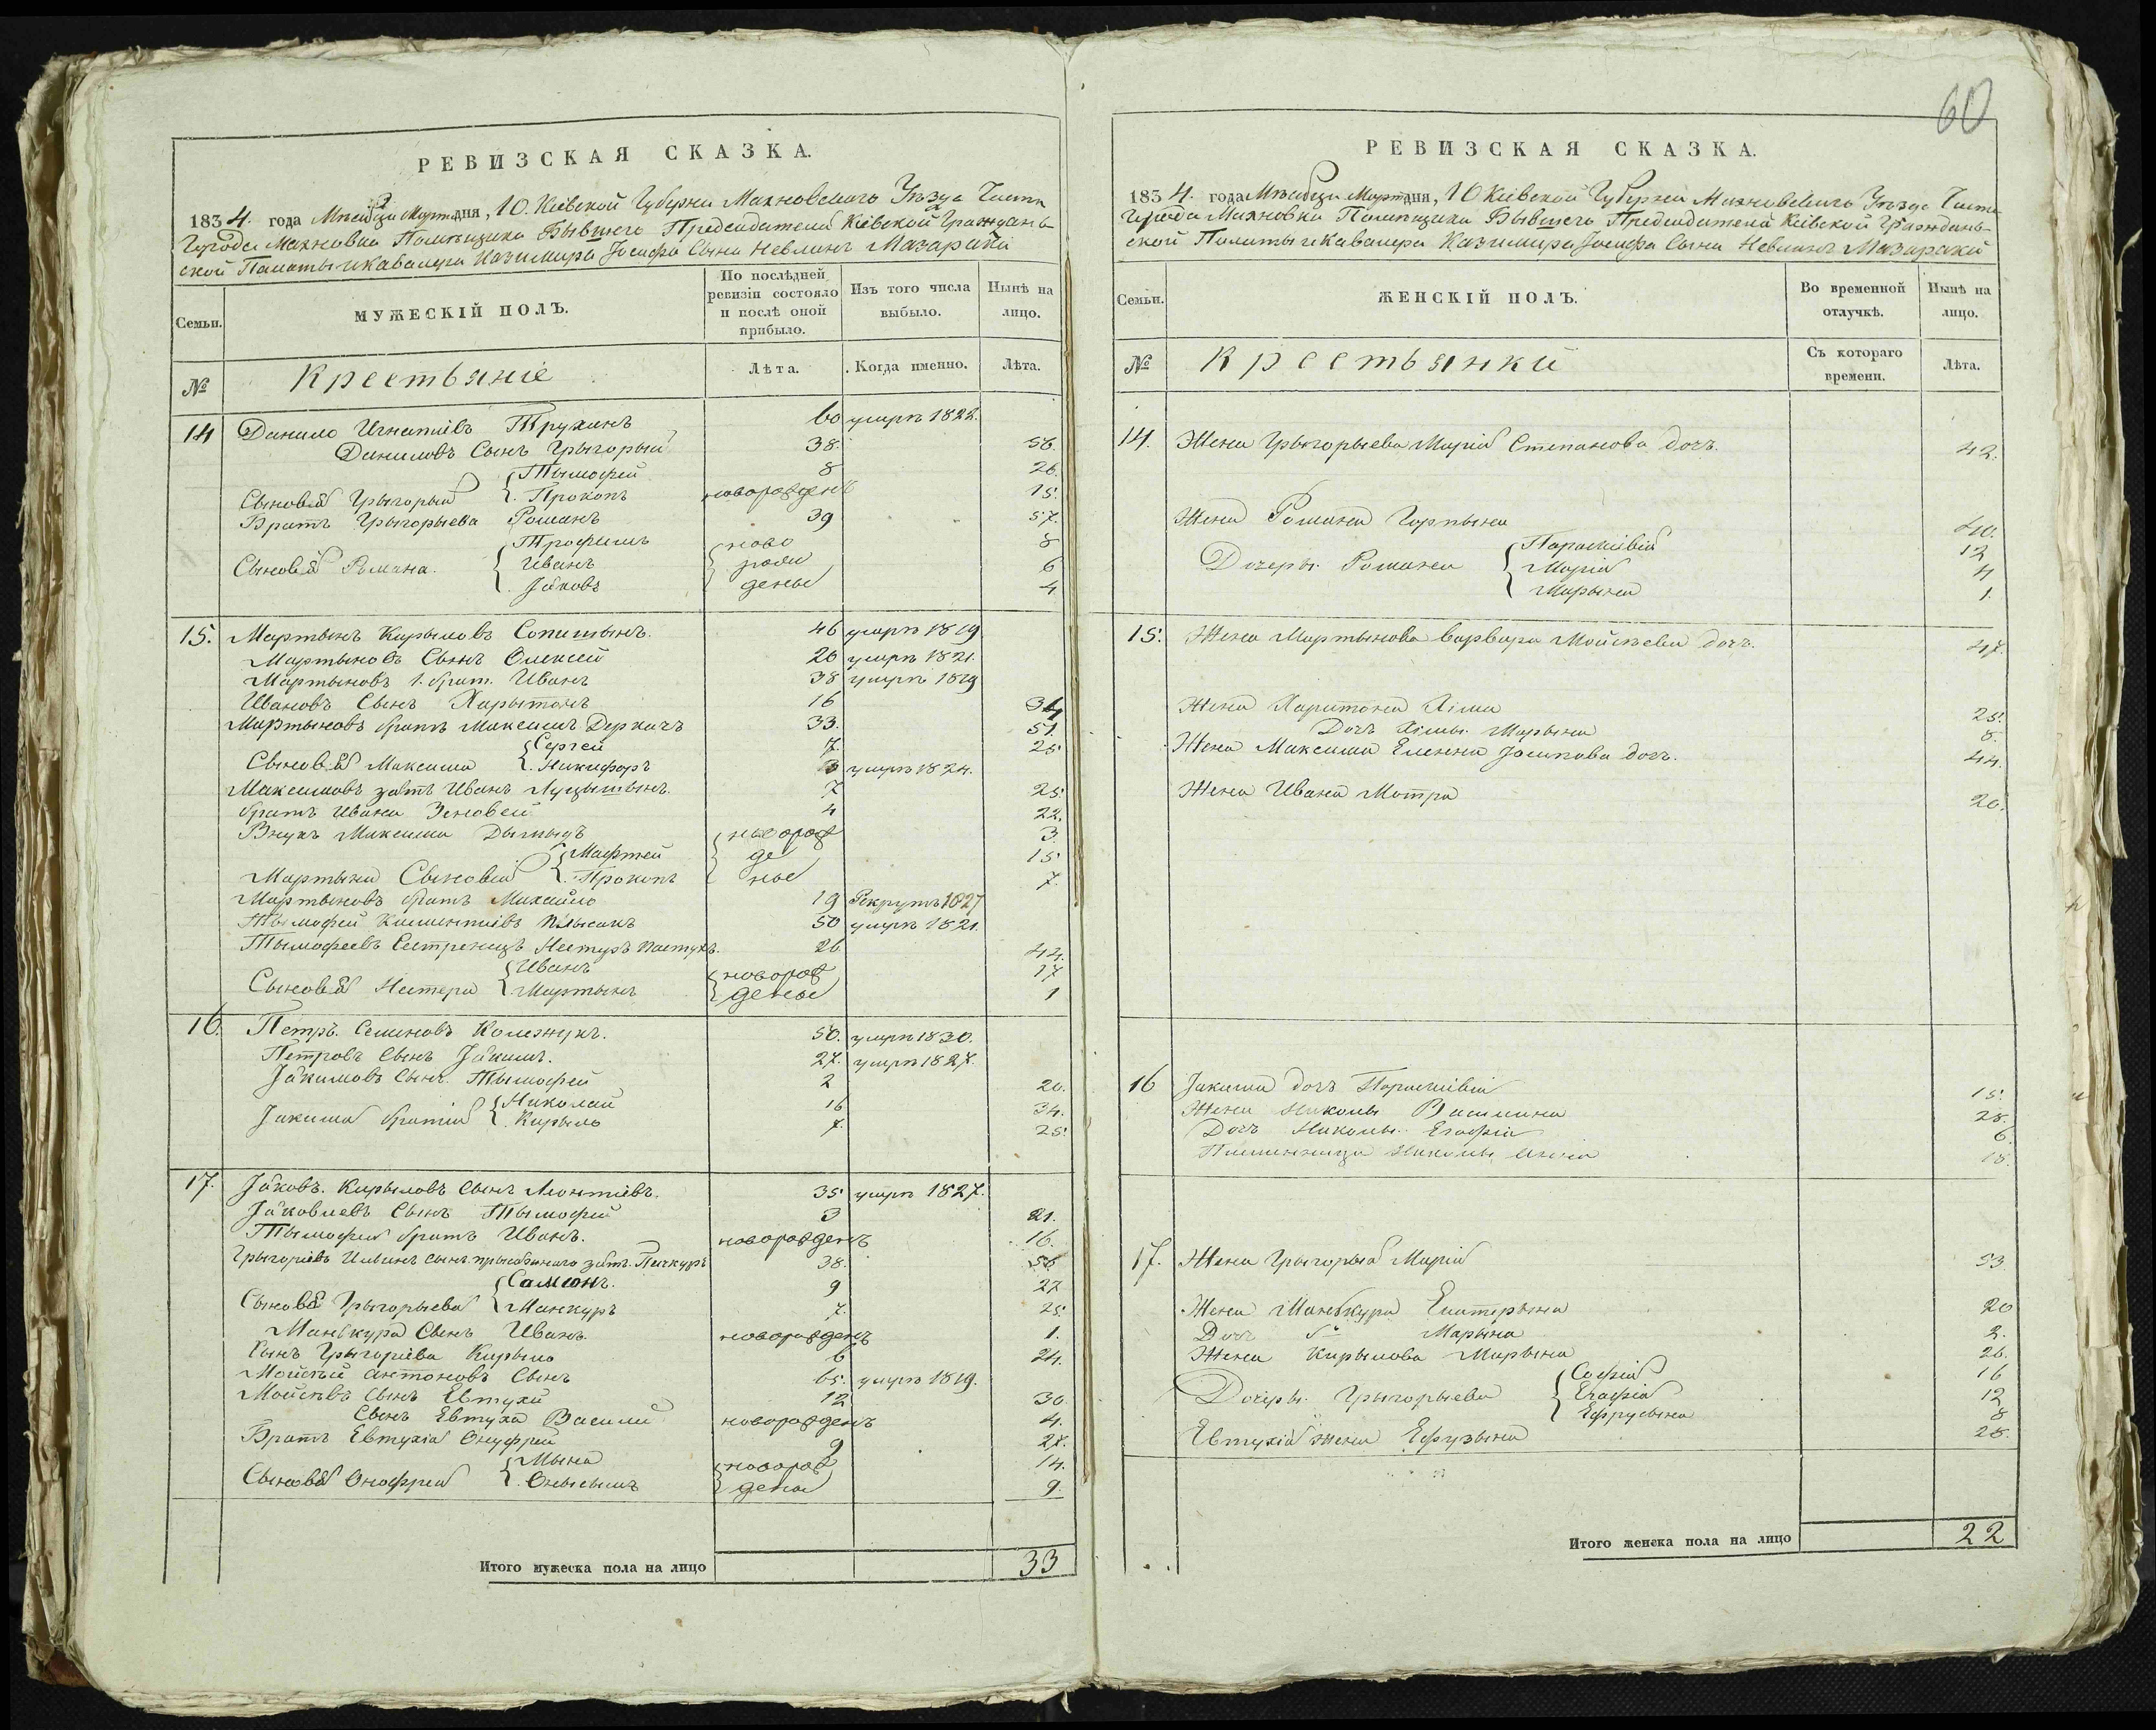 60
РЕВИЗСКАЯ СКАЗКА.
1834. года Мѣсяца Марта дня, 10. Кіевской Губерніи Махновскаго Уѣзда Части
Города Махновки Помѣщика Бывшего Предсѣдателя Кіевской Граждань-
ской Палаты и Кавалера Казимира Іосифа Сына Мазараки
Семьи. МУЖЕСКІЙ ПОЛЪ. По послѣдней ревизіи состояло и послѣ оной прибыло. Изъ того числа выбыло. Нынѣ на лицо.
№ Крестьяніе Лѣта. Когда именно. Лѣта.
14 Данило Игнатіевъ Труханъ 60 умръ 1822.
Даниловъ Сынъ Грыгорый 38. 56.
Сыновья Грыгорыя { Тымофей 8 26.
Прокопъ новорожденъ 15.
Братъ Грыгорыева Романъ 39 57.
Сыновья Романа. { Трофимъ { ново 8
Иванъ рож 6
Яковъ деные 4
15. Мартынъ Кырыловъ 46 умръ 1819
Мартыновъ Сынъ Олексей 20 умръ 1821.
Мартыновъ 1. братъ Иванъ 38 умръ 1819
Ивановъ Сынъ Харытонъ 16 34
Мартыновъ братъ Максимъ Деркачъ 33. 51.
Сыновья Максима { Сергей 7. 25.
Никифоръ 3 умръ 1824.
Максимовъ зять Иванъ 7 25.
братъ Ивана Зеновей 4 22.
Внукъ Максима { новорож 3.
Мартына Сыновья { Мафтей де 15.
Прокопъ ные 7.
Мартыновъ братъ Михайло 19 Рекрутъ 1827
Тымофей Климентіевъ 50 умръ 1821.
Тымофеевъ Сестренецъ Нестеръ Пастухъ. 26 44.
Сыновья Нестера { Иванъ { новорож 17
Мартынъ деные 1
16. Петръ Семеновъ 50. умръ 1830.
Петровъ Сынъ Якимъ. 27. умръ 1827.
Якимовъ Сынъ Тымофей 2 20.
Якима братія { Николай 16 34.
Кырыло 7. 25.
17. Яковъ Кырыловъ Сынъ Леонтіевъ. 35 умръ 1827.
Яковлевъ Сынъ Тымофей 3 21.
Тымофея братъ Иванъ. новорожденъ 16.
Грыгорій Ильинъ Сынъ зять 38. 56
Сыновья Грыгорыева { Самсонъ. 9 27
Манкуръ 7. 25.
Манькура Сынъ Иванъ. новорожденъ 1.
Сынъ Грыгоріева Кырыло 6 24.
Мойсей Антоновъ Сынъ 65. умръ 1819.
Мойсѣевъ Сынъ Евтухи 12 30.
Сынъ Евтуха Василий новорожденъ 4.
Братъ Евтухія Онуфрій 9 27.
Сыновья Онофрея { Мына { новорож 14.
Онысымъ деные 9.
Итого мужеска пола на лицо 33
РЕВИЗСКАЯ СКАЗКА.
1834. года Мѣсяца Марта дня, 10 Кіевской Губерніи Махновскаго Уѣзда Части
Города Махновки Помѣщика Бывшего Предсѣдателя Кіевской Граждань-
ской Палаты и Кавалера Казимира Іосифа Сына Мазараки
Семьи. ЖЕНСКІЙ ПОЛЪ. Во временной отлучкѣ. Нынѣ на лицо.
№ Крестьянки Съ котораго времени. Лѣта.
14. Жена Грыгорыева Марія Степанова дочъ. 42.
Жена Романа Горпына 40.
Дочеры Романа { Параскивія 12
Марія 4
Марына 1.
15. Жена Мартынова Варвара Мойсѣева дочъ. 47.
Жена Харитона Хіма 25.
Дочъ Хімы Марына 8.
Жена Максима Еленна дочъ. 44.
Жена Ивана Мотра 20.
16 Якима дочъ Параскивія 15.
Жена Николы Василина 28.
Дочъ Николы Егафія 6.
Племенница Николы Анна 18.
17. Жена Грыгорыя Марія 53.
Жена Манькура Екатерына 20
Дочъ Марына 2.
Жена Кирылова Марына 26.
Дочеры Грыгорыева { Софія 16
Егафія 12
Ефрусына 8
Евтухія жена Ефрузына 28.
Итого женска пола на лицо 22